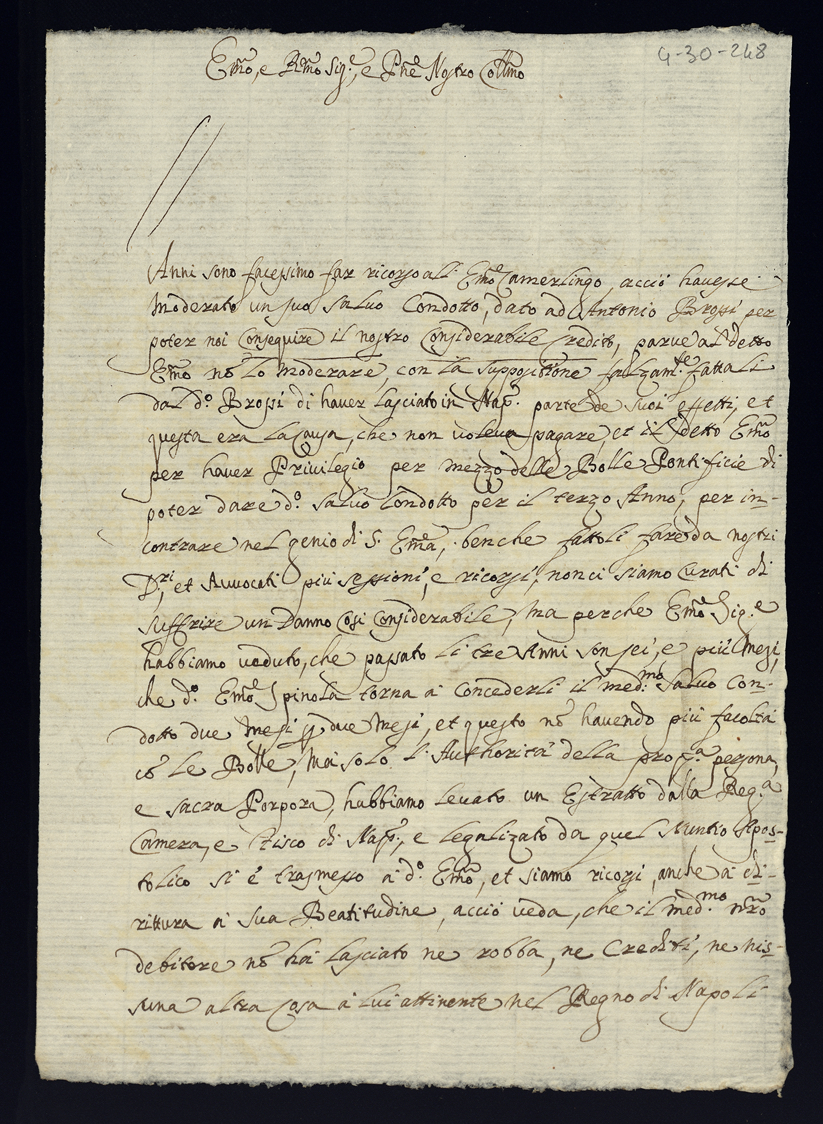 4-30-248
Em̃o, e Rm̃o Sig.e, e Pñe Nostro Coll̃mo
Anni sono facessimo far ricorso all' Em̃o Camerlingo, acciò havesse
moderato un suo Salvo Condotto, dato ad Antonio Brossi per
poter noi conseguire il nostro considerabile Credito, parve al detto
Em̃o nõ lo moderare, con la supposizione falzam.te fattali
dal d.o Brossi di haver lasciato in Nap. parte de suoi effetti, et
questa era la causa, che non voleva pagare et il detto Em̃o
per haver Privilegio per mezzo delle Bolle Pontificie di
poter dare d.o Salvo Condotto per il terzo Anno, per in-
contrare nel genio di S. Em̃a, benche fattoli fare da nostri
D.ri, et Avvocati più sessioni, e ricorsi, non ci siamo curati di
suffrire un Danno così considerabile, ma perche Em̃o Sig.e
habbiamo veduto, che passato li tre Anni son sei, e più mesi,
che d.o Em̃o Spinola torna à concederli il med.mo Salvo Con-
dotto due mesi p due mesi, et questo nõ havendo più facoltà
cõ le Bolle, mà solo l'Authorità della prop.a persona,
e sacra Porpora, habbiamo levato un Estratto dalla Reg.a
Camera, e Fisco di Nap., e legalizato da quel Nuntio Apos-
tolico si è trasmesso à d.o Em̃o, et siamo ricorsi, anche à di-
rittura à Sua Beatitudine, acciò veda, che il med.mo nrõ
debitore nõ hà lasciato ne robba, ne Crediti, ne nis-
suna altra cosa à lui attinente nel Regno di Napoli